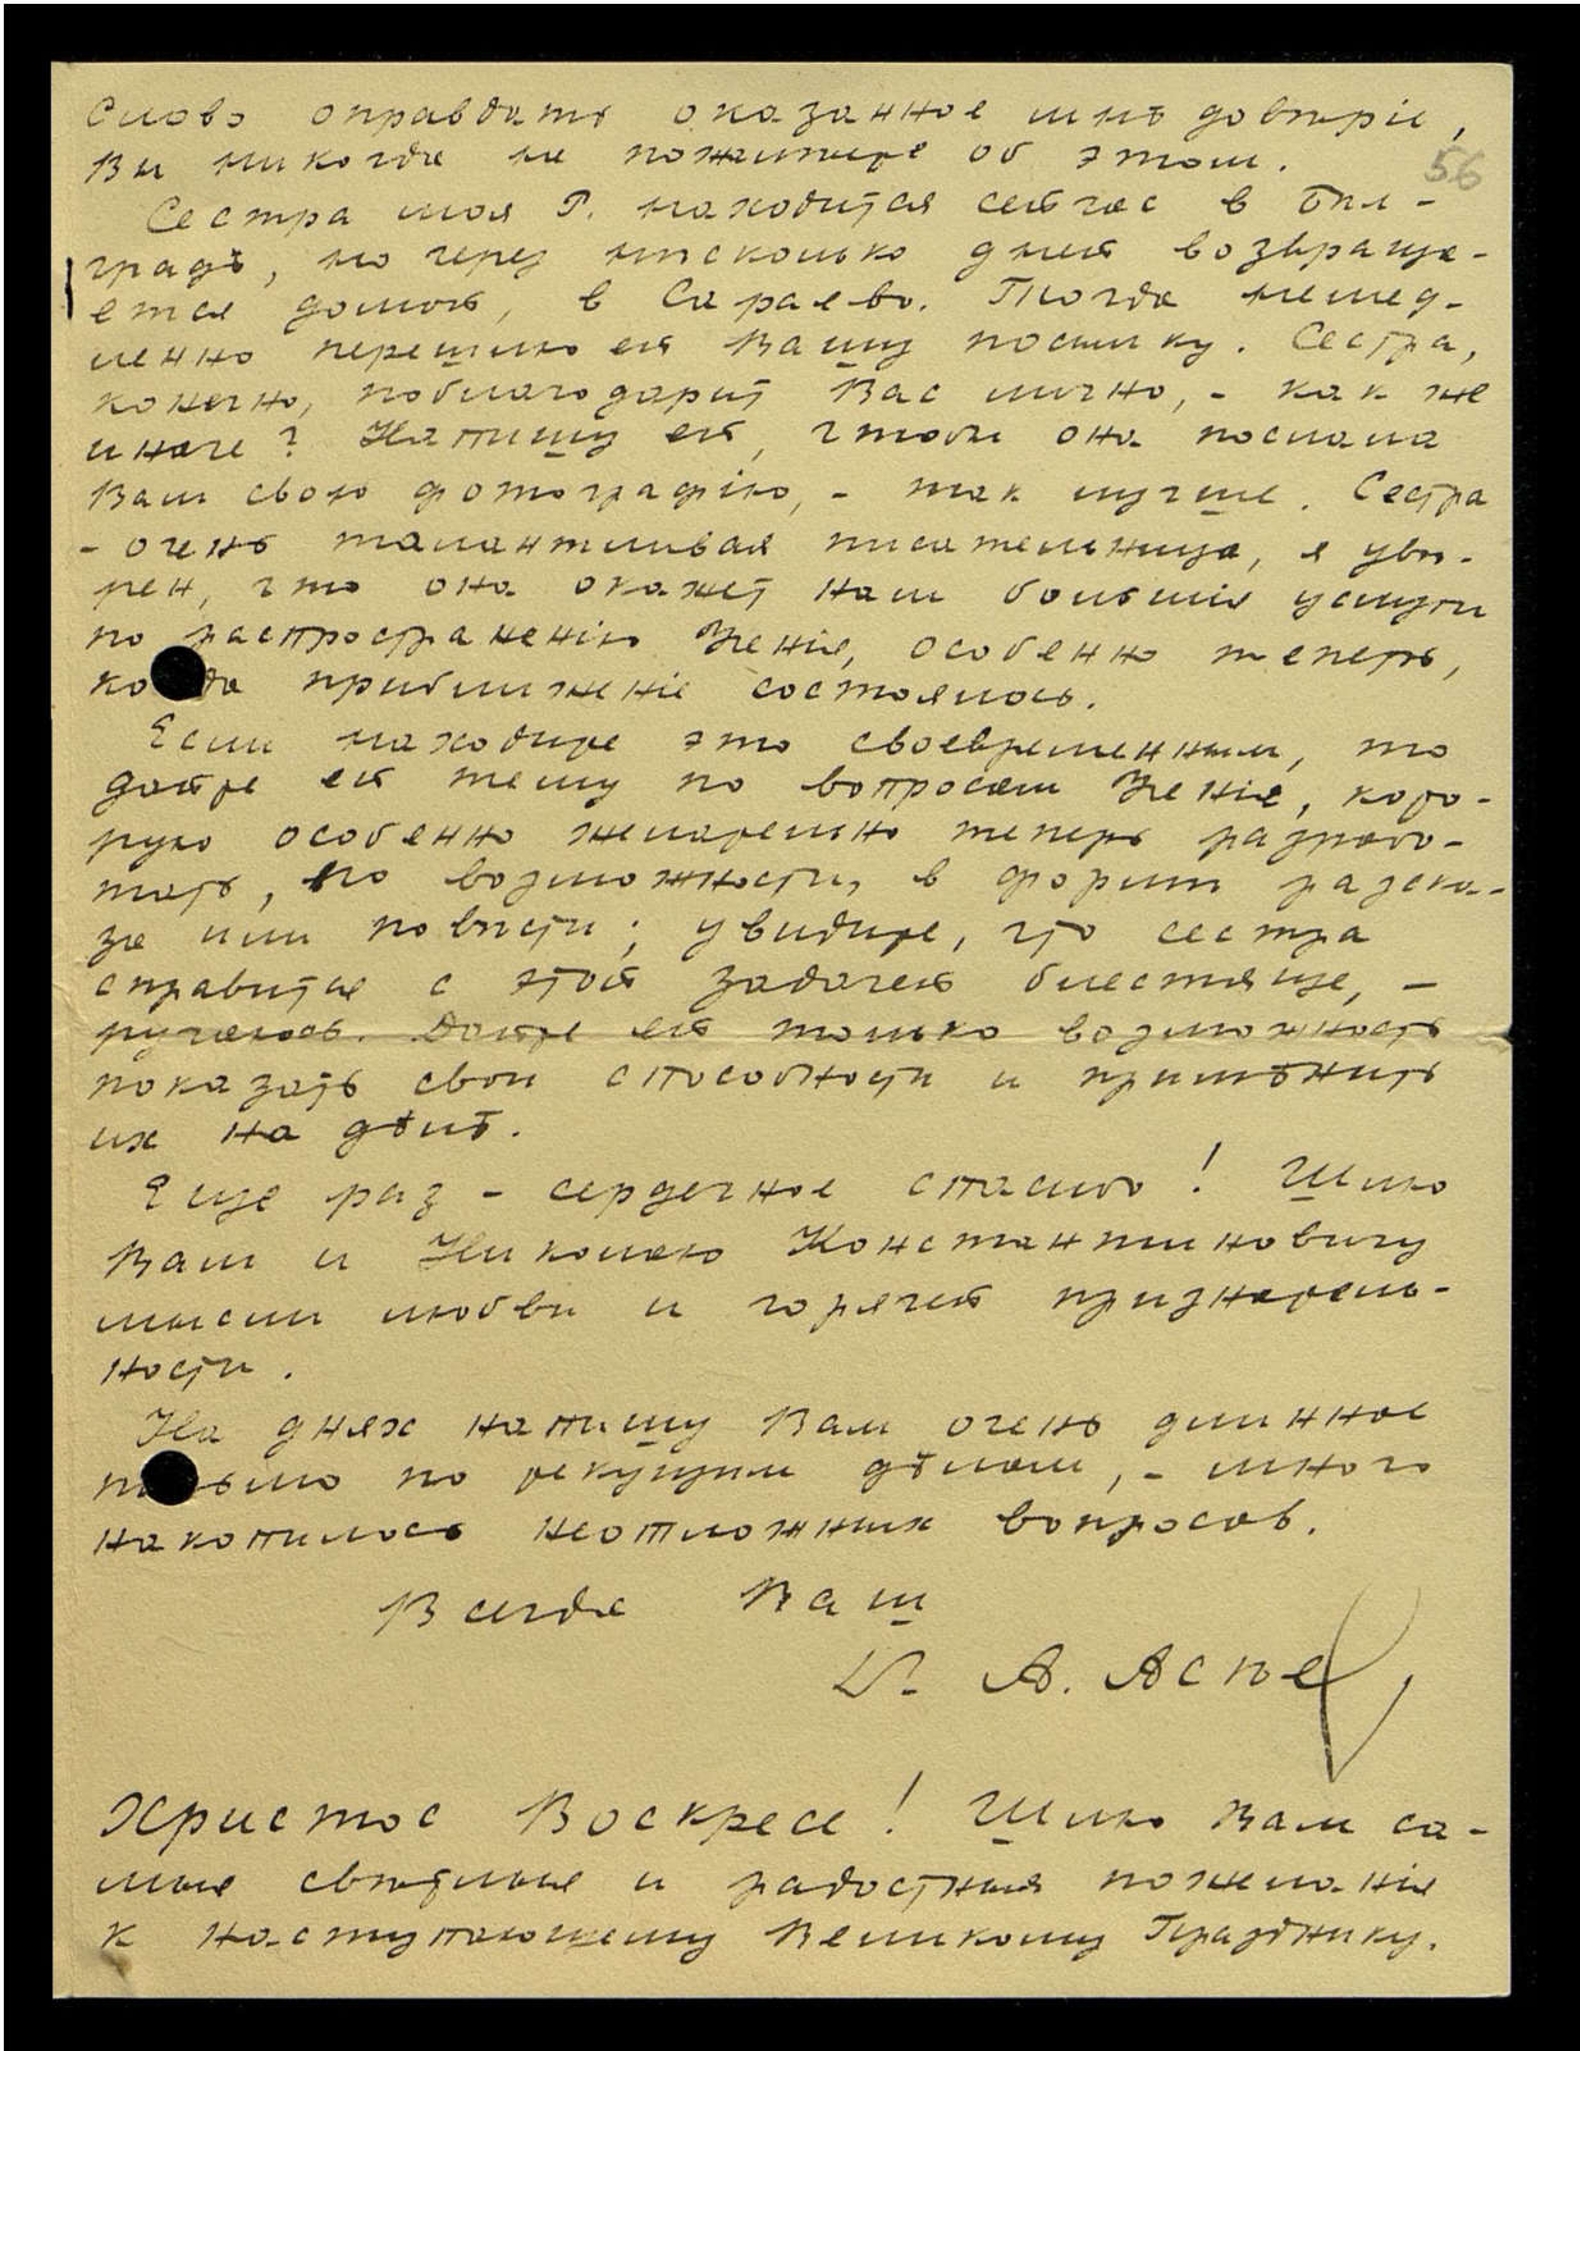 слово оправдать оказанное мнѣ довѣріе,
Вы никогда не пожалѣете об этом.
56
Сестра моя Г. находится сейчас в Бѣл-
градѣ, но через нѣсколько дней возвраща-
ется домой, в Сараево. Тогда немед-
ленно перешлю ей Вашу посылку. Сестра,
конечно, поблагодарит Вас лично, - как же
иначе? Напишу ей, чтобы она послала
Вам свою фотографію, - так лучше. Сестра
- очень талантливая писательница, я увѣ-
рен, что она окажет нам большія услуги
по распространенію Ученія, особенно теперь,
когда приближеніе состоялось.
Если находите это своевременным, то
дайте ей тему по вопросам Ученія, кото-
рую особенно желательно теперь разрабо-
тать, по возможности, в формѣ разска-
за или повѣсти; увидите, что сестра
справится с этой задачей блестяще, -
ручаюсь. Дайте ей только возможность
показать свои способности и примѣнить
их на дѣлѣ.
Еще раз - сердечное спасибо! Шлю
Вам и Николаю Константиновичу
мысли любви и горячей признатель-
ности.
На днях напишу Вам очень длинное
письмо по текущим дѣлам, - много
накопилось неотложных вопросов.
Всегда Ваш
Др. А. Асеев
Христос Воскресе! Шлю Вам са-
мыя свѣтлыя и радостныя пожеланія
к наступающему Великому Празднику.